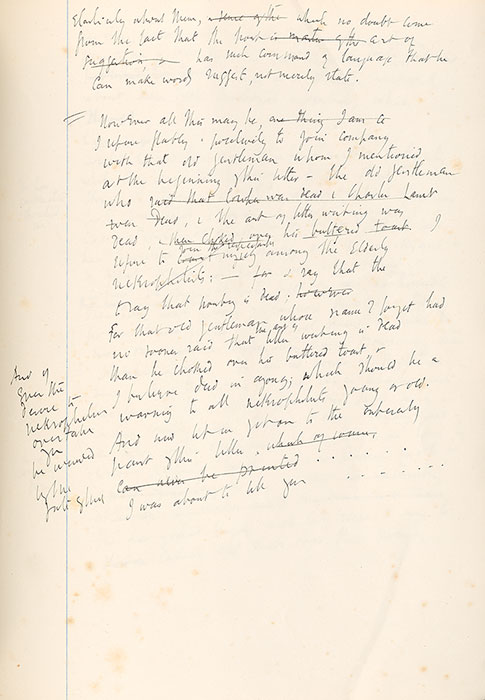 Elasticity about them, a sense of the which no doubt come
from the fact that the poet is master of the art of
suggestion & has such command of language that he
can make words suggest, not merely state.
However all this may be, one thing I am
I refuse flatly & positively to join company
with that old gentleman whom I mentioned
at the beginning of this letter - the old gentleman
who said that was dead & Charles Lamb
was Dead, & the art of letter writing was
dead, & then choked over his buttered toast. I
refuse to myself among the Elderly
nekrophilists: - for I say that the
say that poetry is dead. however
For that old gentleman whose name I forget had
no sooner said that the art of letter writing is dead
than he choked over his buttered toast &
I believe died in agony; which should be a
warning to all nekrophilists, young or old.
And now let us get on to the intensely
point of this letter, which of course
can never be printed . . . . . .
I was about to tell you . . . . . .
And if
Ever the
desire to
nekrophilize
over take
you
be warned
by the
fate of this